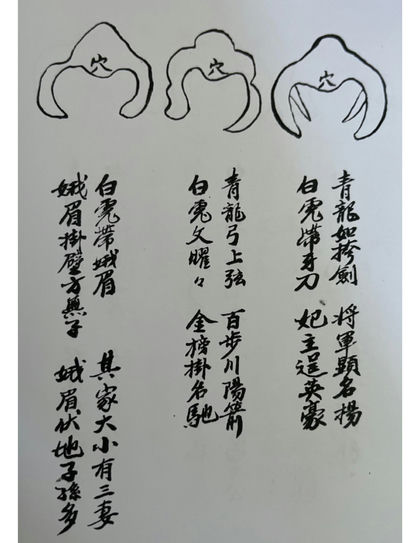 穴
穴
穴
青龍如挎劍 將軍顯名揚
白虎帶牙刀 妃主逞英豪
青龍弓上弦 百步川陽箭
白虎文曜々 金榜掛名馳
白虎帶娥眉 其家大小有三妻
娥眉掛壁方無子 娥眉伏地子孫多